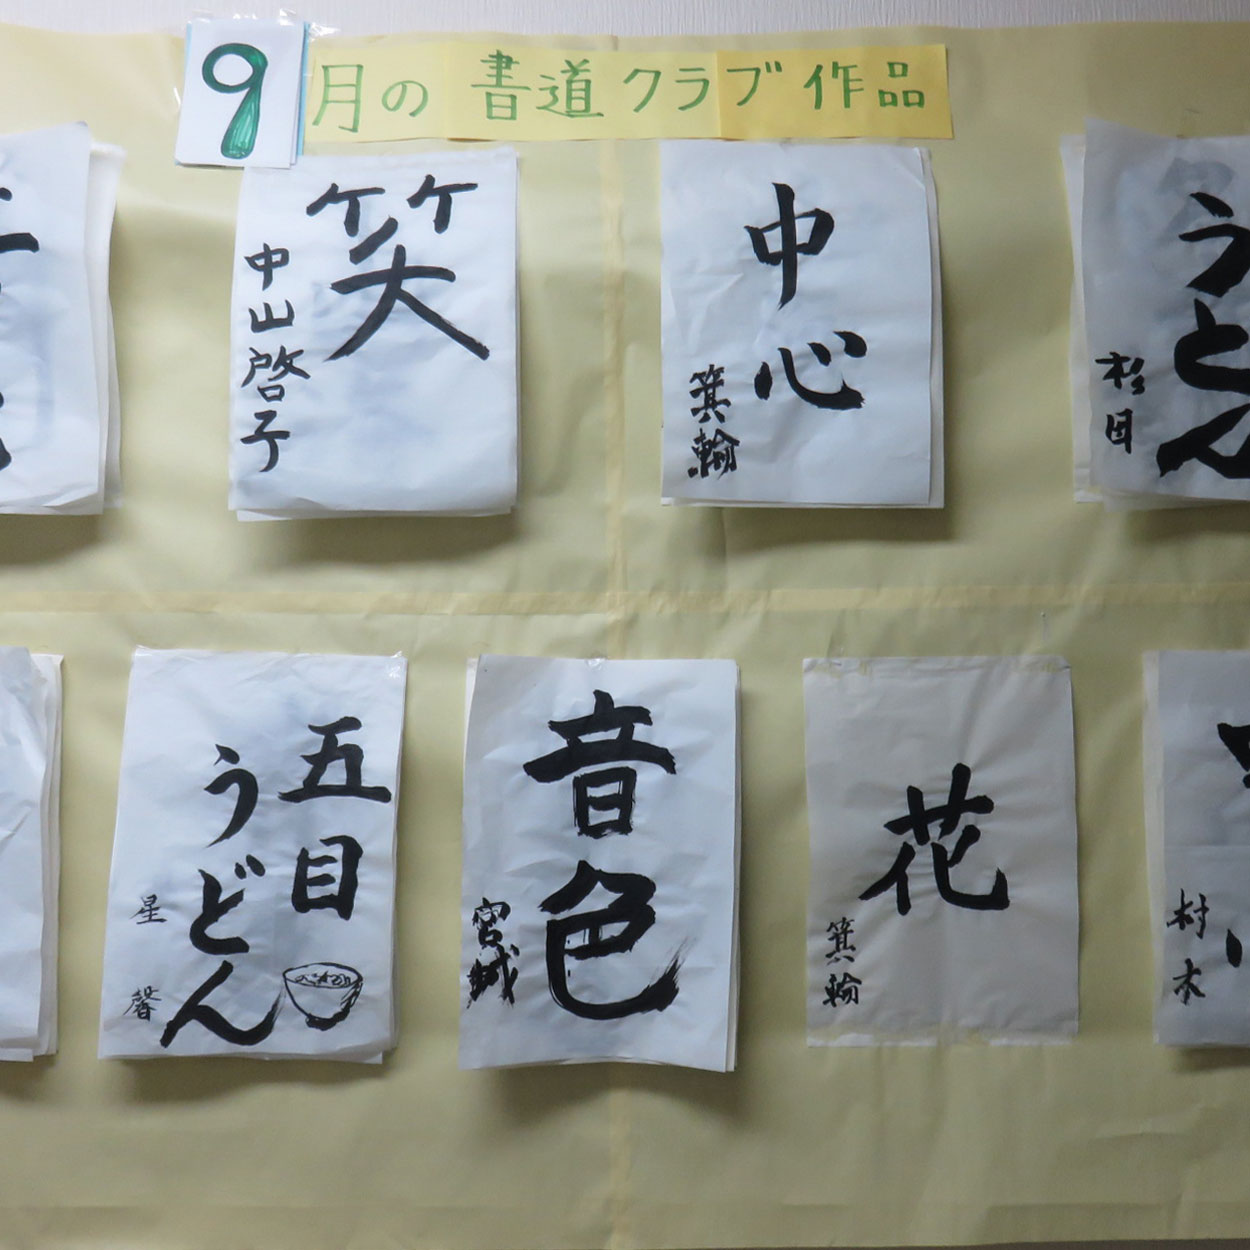 9月の書道クラブ作品
笑
中山啓子
中心
箕輪
うどん
杉田
五目
うどん
星 馨
音色
宮城
花
箕輪
村木